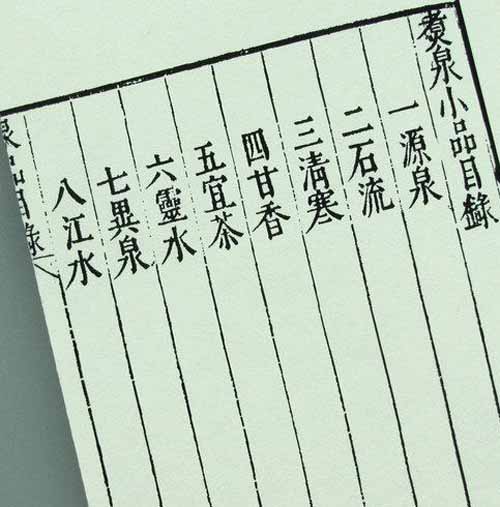 煑泉小品目錄
一源泉
二石流
三清寒
四甘香
五宜茶
六靈水
七異泉
八江水
泉品目錄